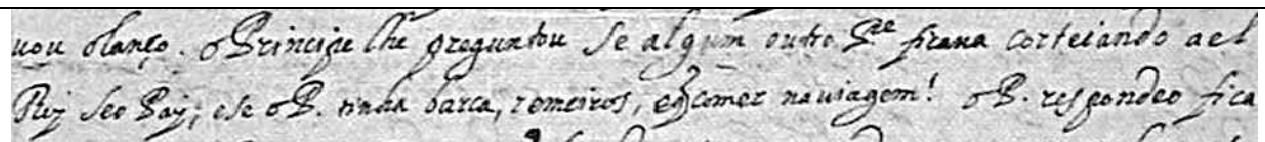 uou o lanço. o Principe lhe preguntou se algum outro P.e ficaua corteiando a el
Rey seo Pay; e se o P. tinha barca, remeiros, e q̃ comer na uiagem! o P. respondeo fica